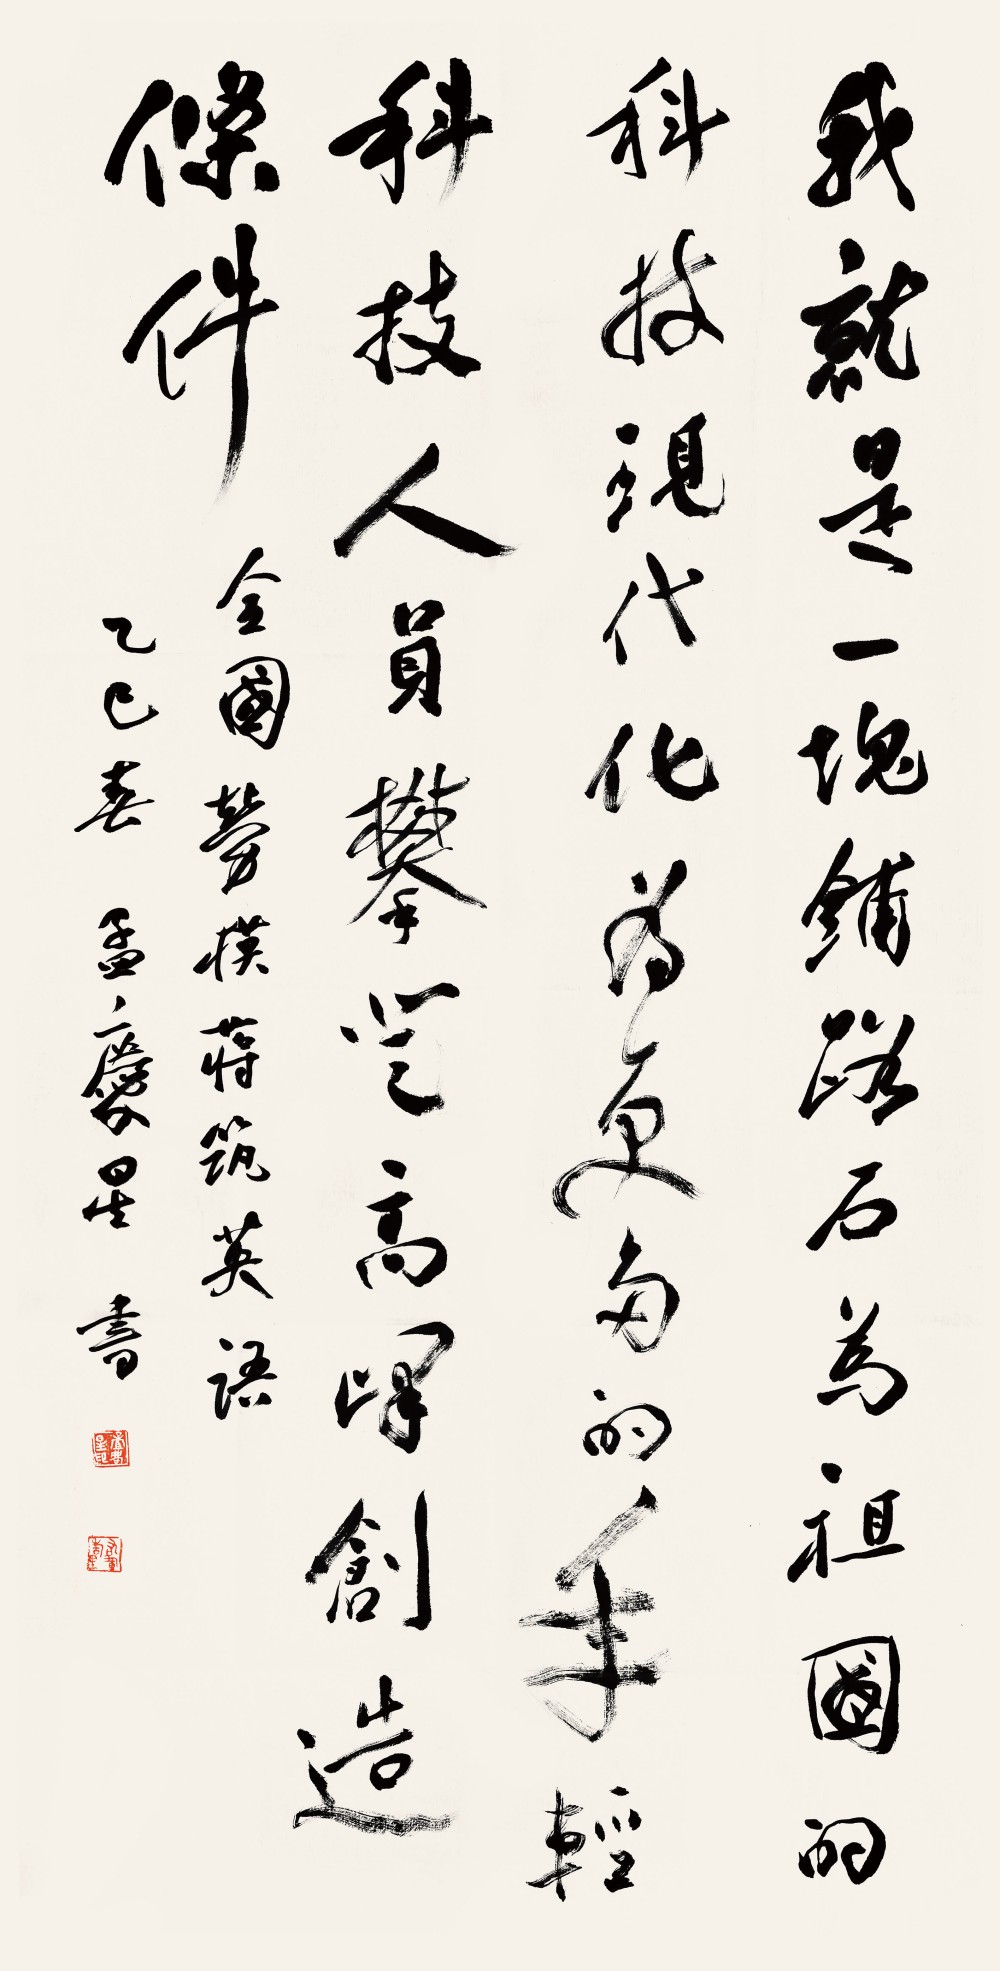 我就是一塊鋪路石為祖國的
科技現代化為更多的年輕
科技人員攀登高峰創造
條件
全國勞模蔣筑英語
乙巳春 孟慶星 書